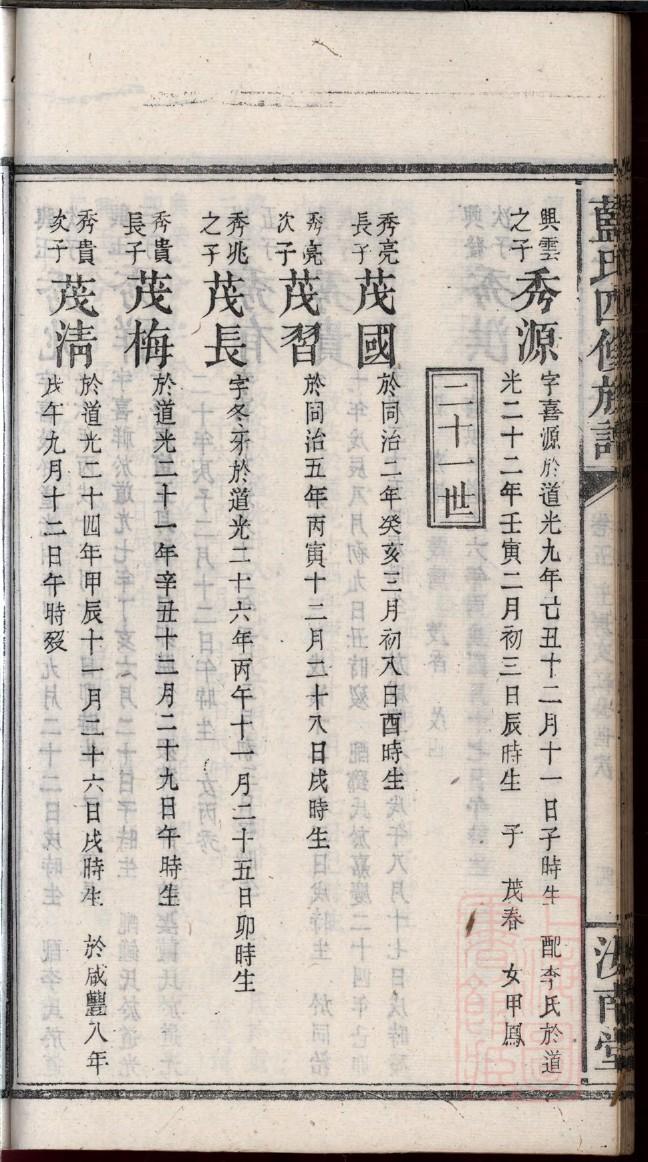 藍氏四修族譜
汝南堂
興雲之子
秀源
字喜源於道光九年亡丑十二月十一日子時生 配李氏於道
光二十二年壬寅二月初三日辰時生 子 茂春 女甲鳳
二十一世
秀亮長子
茂國
於同治二年癸亥三月初八日酉時生
秀亮次子
茂習
於同治五年丙寅十二月二十八日戌時生
秀兆之子
茂長
字冬牙於道光二十六年丙午十一月二十五日卯時生
秀貴長子
茂梅
於道光二十一年辛丑十二月二十九日午時生
秀貴次子
茂淸
於道光二十四年甲辰十一月二十六日戌時生 於咸豐八年
戊午九月十二日午時歿